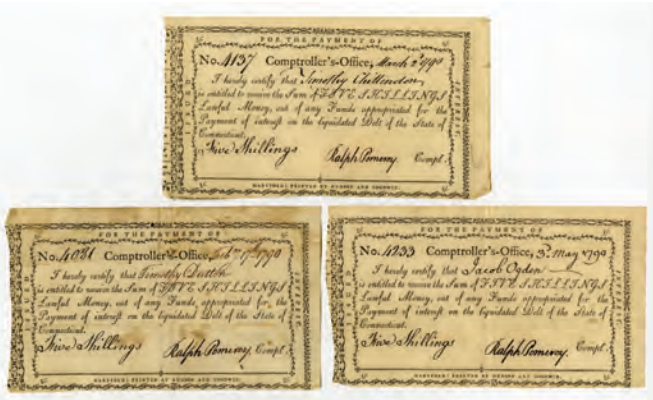 FOR THE PAYMENT OF
No. 4137 Comptroller's-Office, March 2d 1790
I hereby certify that Timothy Chittendon
is entitled to receive the Sum of FIVE SHILLINGS
Lawful Money, out of any Funds appropriated for the
Payment of interest on the liquidated Debt of the State of
Connecticut.
Five Shillings Ralph Pomeroy. Compt.
HARTFORD: PRINTED BY HUDSON AND GOODWIN.
INTEREST
FOR THE PAYMENT OF
No. 4021 Comptroller's-Office, Feb 17th 1790
I hereby certify that Timothy Dutton
is entitled to receive the Sum of FIVE SHILLINGS
Lawful Money, out of any Funds appropriated for the
Payment of interest on the liquidated Debt of the State of
Connecticut.
Five Shillings Ralph Pomeroy. Compt.
HARTFORD: PRINTED BY HUDSON AND GOODWIN.
FOR THE PAYMENT OF
No. 4233 Comptroller's-Office, 3d May 1790
I hereby certify that Jacob Ogden
is entitled to receive the Sum of FIVE SHILLINGS
Lawful Money, out of any Funds appropriated for the
Payment of interest on the liquidated Debt of the State of
Connecticut.
Five Shillings Ralph Pomeroy. Compt.
HARTFORD: PRINTED BY HUDSON AND GOODWIN.